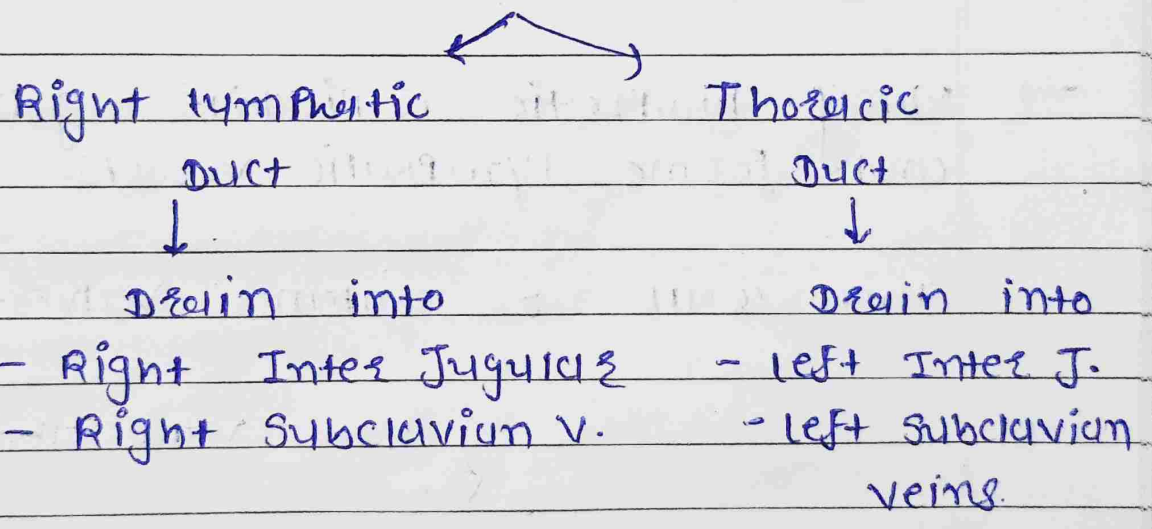 Right lymphatic
Duct
↓
Drain into
- Right Inter Jugular
- Right Subclavian v.
Thoracic
Duct
↓
Drain into
- left Inter J.
- left subclavian
veins.